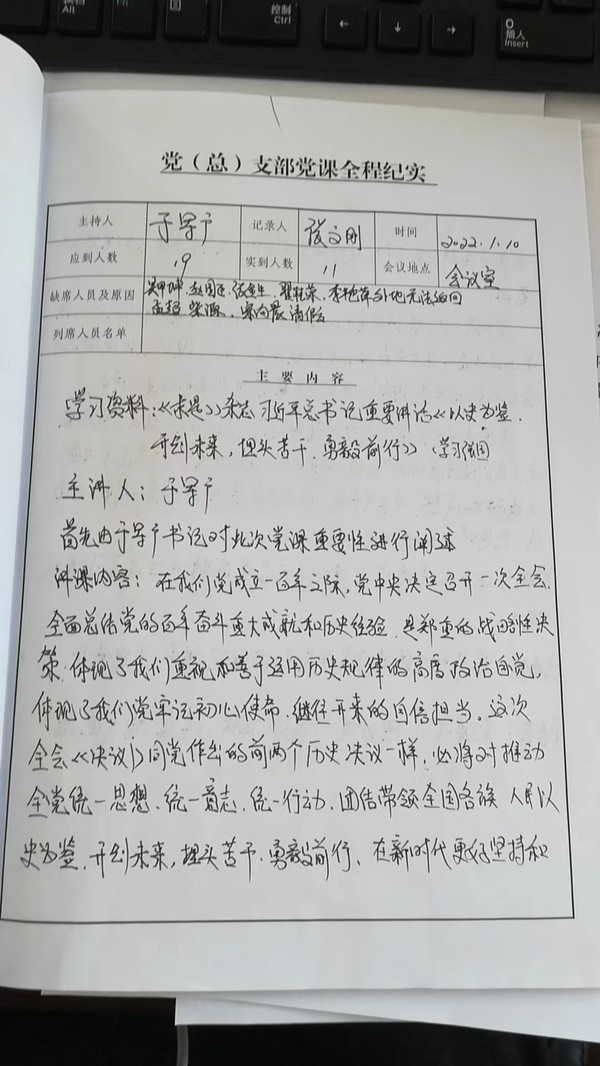 控制
Alt
Fn
Alt
Ctrl
←
↓
→
0
插入
Insert
党（总）支部党课全程纪实
主持人 于军广 记录人 文刚 时间 2022.1.10
应到人数 19 实到人数 11 会议地点 会议室
缺席人员及原因 外地无法返回
请假
列席人员名单
主要内容
学习资料：《求是》杂志习近平总书记重要讲话《以史为鉴、
开创未来，埋头苦干、勇毅前行》（学习强国
主讲人：于军广
首先由于军广书记对此次党课重要性进行阐述
讲课内容：在我们党成立一百年之际，党中央决定召开一次全会，
全面总结党的百年奋斗重大成就和历史经验，是郑重的战略性决
策，体现了我们重视和善于运用历史规律的高度政治自觉，
体现了我们党牢记初心使命、继往开来的自信担当。这次
全会《决议》同党作出的前两个历史决议一样，必将对推动
全党统一思想、统一意志、统一行动，团结带领全国各族人民以
史为鉴、开创未来，埋头苦干、勇毅前行，在新时代更好坚持和